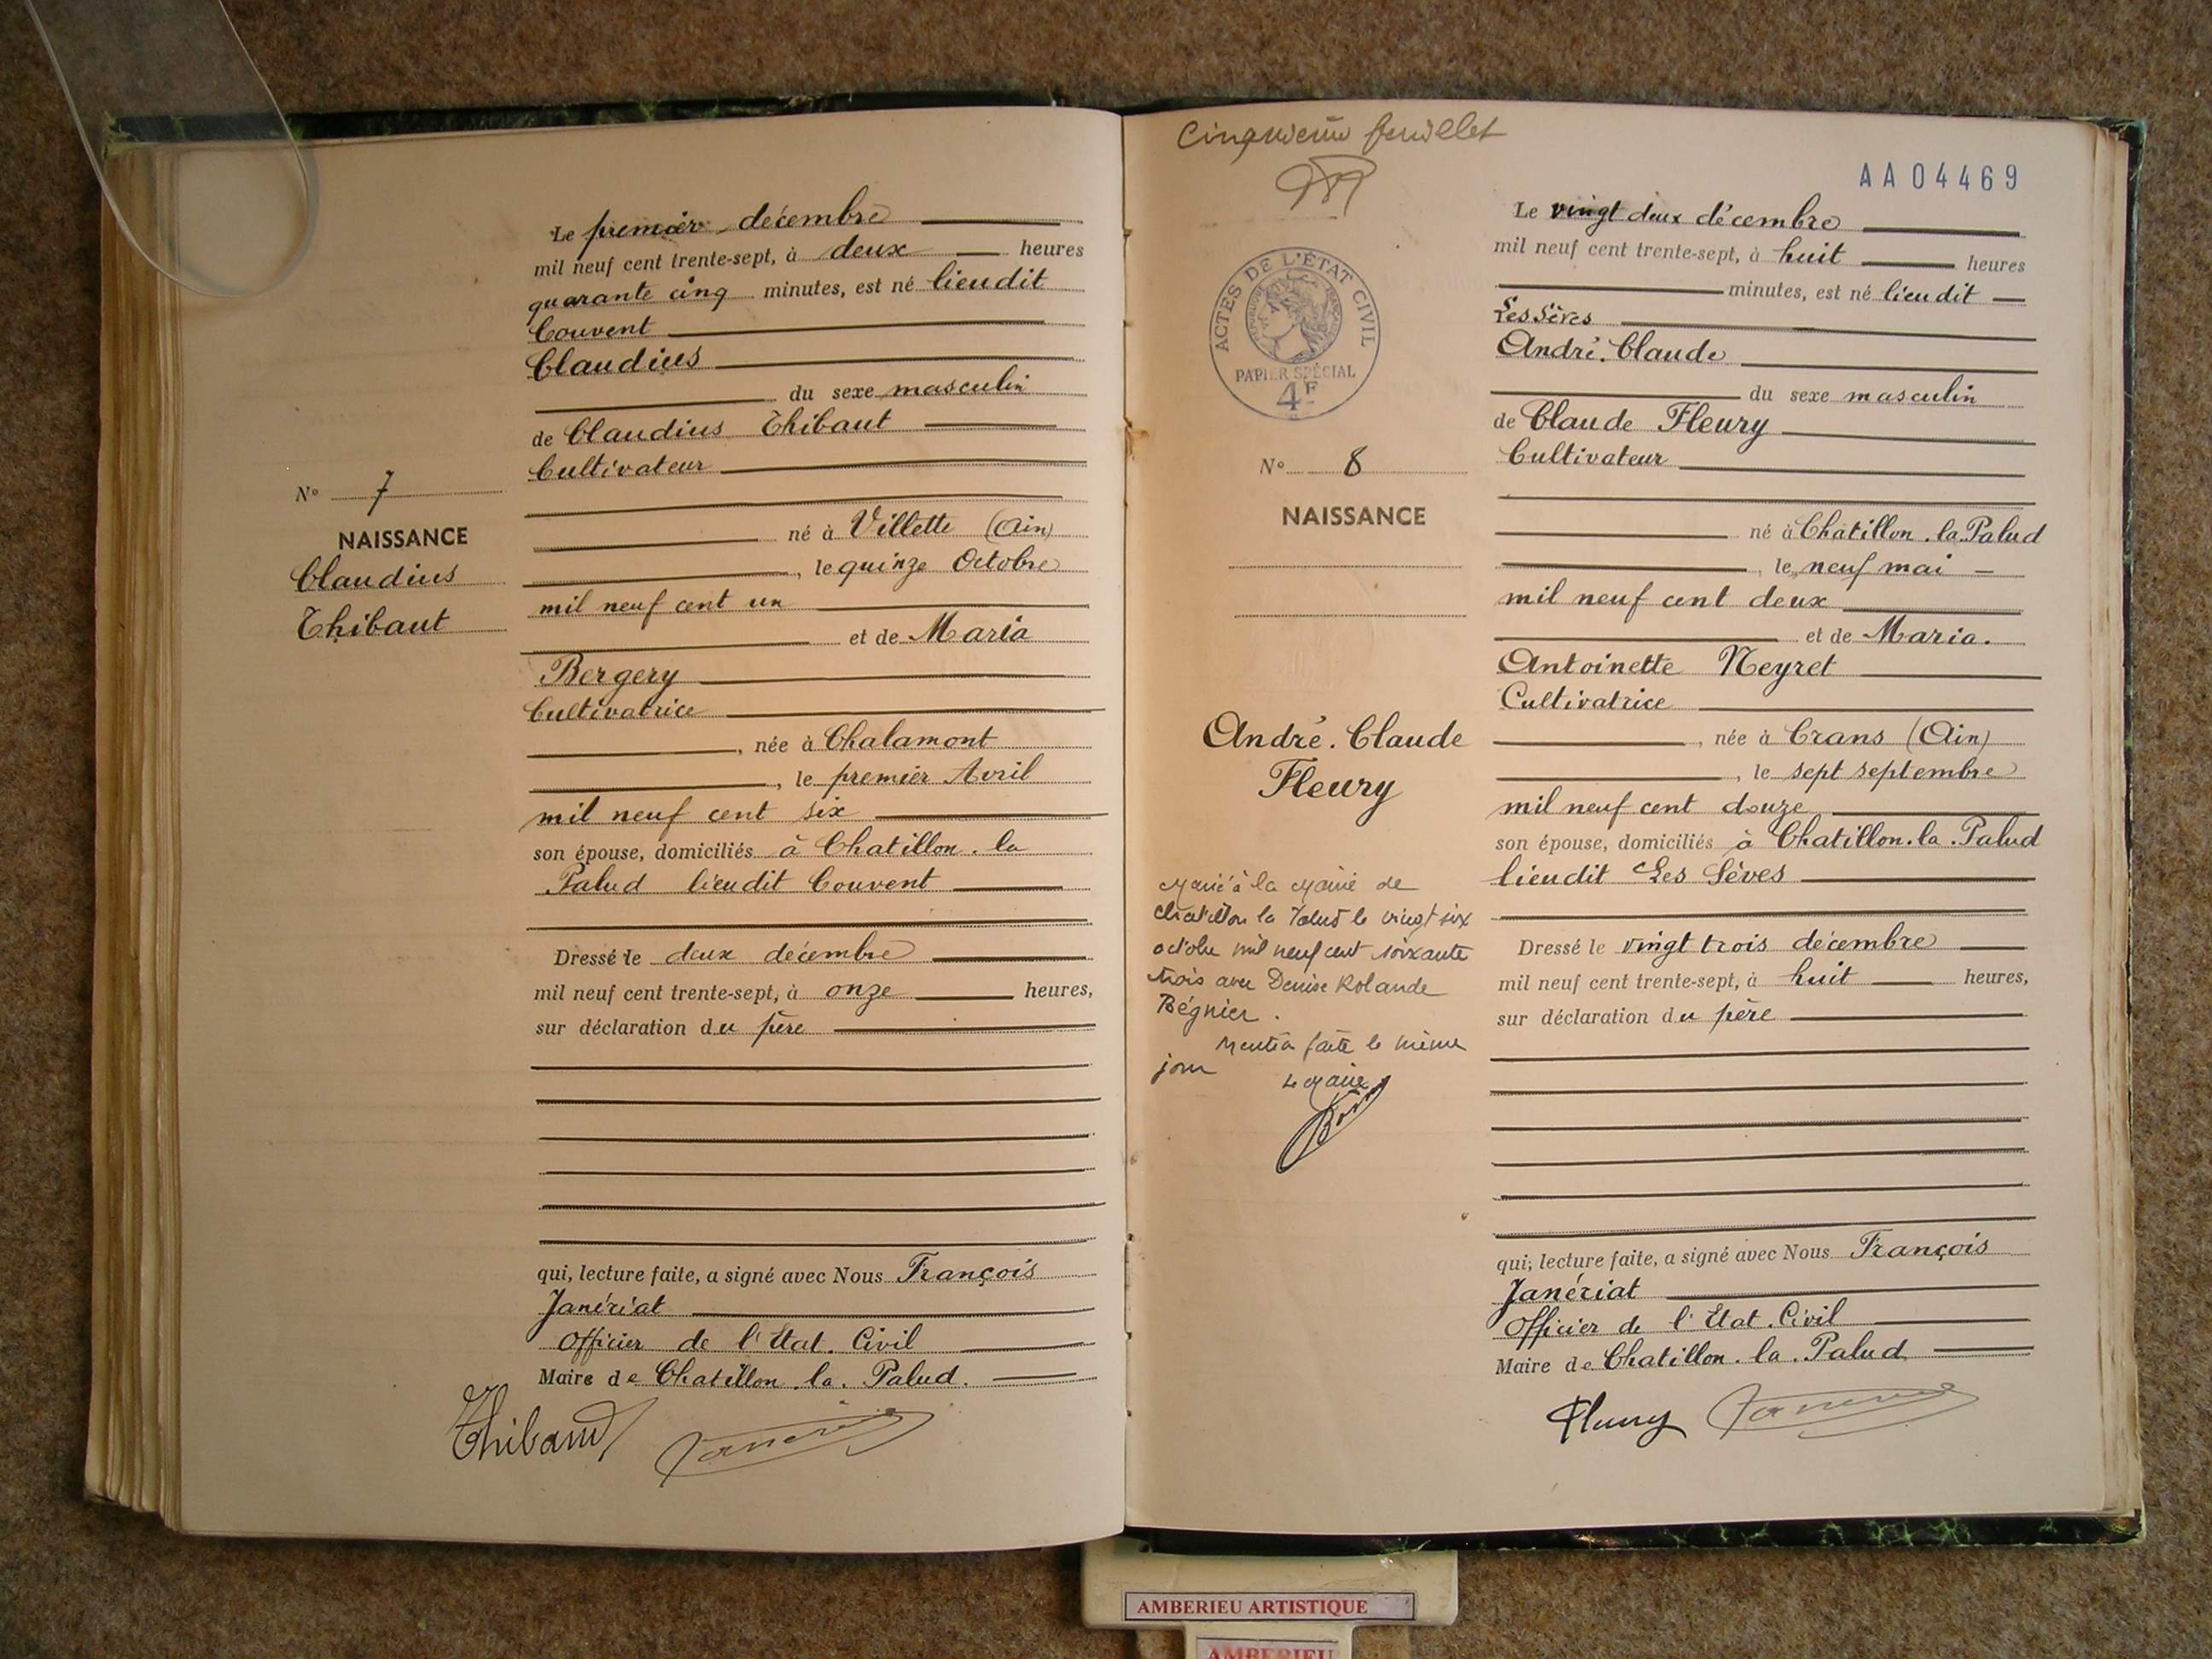 Le premier décembre
mil neuf cent trente-sept, à deux heures
quarante cinq minutes, est né lieudit
Couvent
Claudius
du sexe masculin
de Claudius Thibaut
Cultivateur
né à Villette (Ain)
, le quinze Octobre
mil neuf cent un
et de Maria
Bergery
Cultivatrice
, née à Chalamont
, le premier Avril
mil neuf cent six
son épouse, domiciliés à Chatillon. la
Palud lieudit Couvent
Dressé le deux décembre
mil neuf cent trente-sept, à onze heures,
sur déclaration du père
qui, lecture faite, a signé avec Nous François
Janériat
Officier de l'Etat. Civil
Maire de Chatillon. la. Palud.
Thibaud
N° 7
NAISSANCE
Claudius
Thibaut
Cinquième feuillet
ACTES DE L'ÉTAT CIVIL
PAPIER SPÉCIAL
4F
N° 8
NAISSANCE
André. Claude
Fleury
Marié à la Mairie de
Chatillon la Palud le vingt six
octobre mil neuf cent soixante
trois avec Denise Rolande
Bégnier.
Mention faite le même
jour Le Maire
AA04469
Le vingt deux décembre
mil neuf cent trente-sept, à huit heures
minutes, est né lieudit
Les Sèves
André. Claude
du sexe masculin
de Claude Fleury
Cultivateur
né à Chatillon. la. Palud
, le neuf mai
mil neuf cent deux
et de Maria.
Antoinette Neyret
Cultivatrice
, née à Crans (Ain)
, le sept septembre
mil neuf cent douze
son épouse, domiciliés à Chatillon. la. Palud
lieudit Les Sèves
Dressé le vingt trois décembre
mil neuf cent trente-sept, à huit heures,
sur déclaration du père
qui, lecture faite, a signé avec Nous François
Janériat
Officier de l'Etat. Civil
Maire de Chatillon. la. Palud
Fleury
AMBERIEU ARTISTIQUE
AMBERIEU